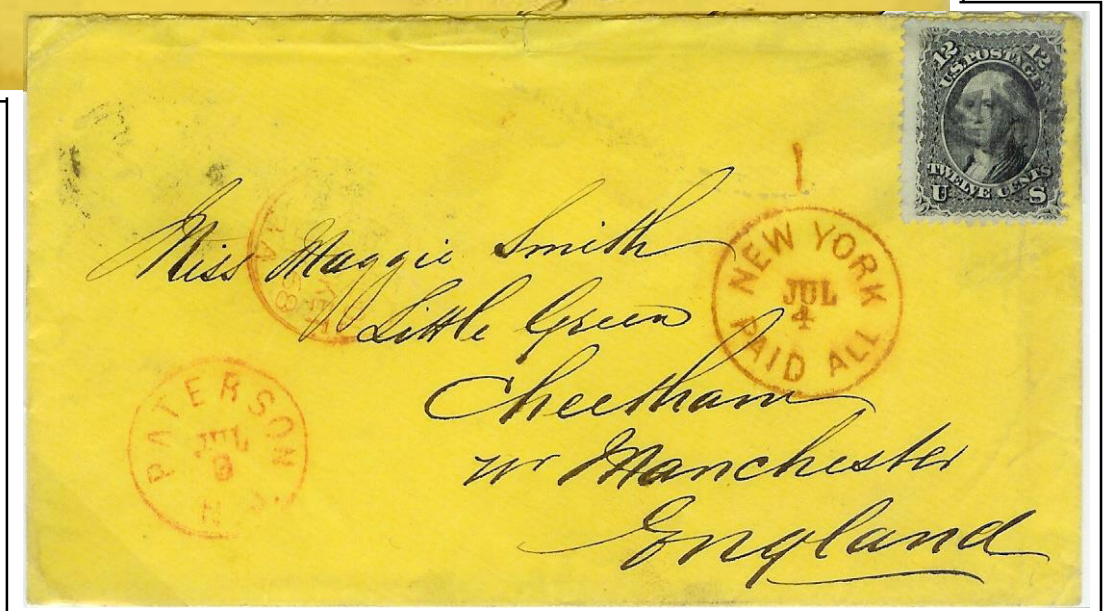 12 12
U.S. POSTAGE
TWELVE CENTS
U S
Miss Maggie Smith
Little Green
Cheetham
nr Manchester
England
NEW YORK
JUL
4
PAID ALL
PATERSON
JUL
N.J.